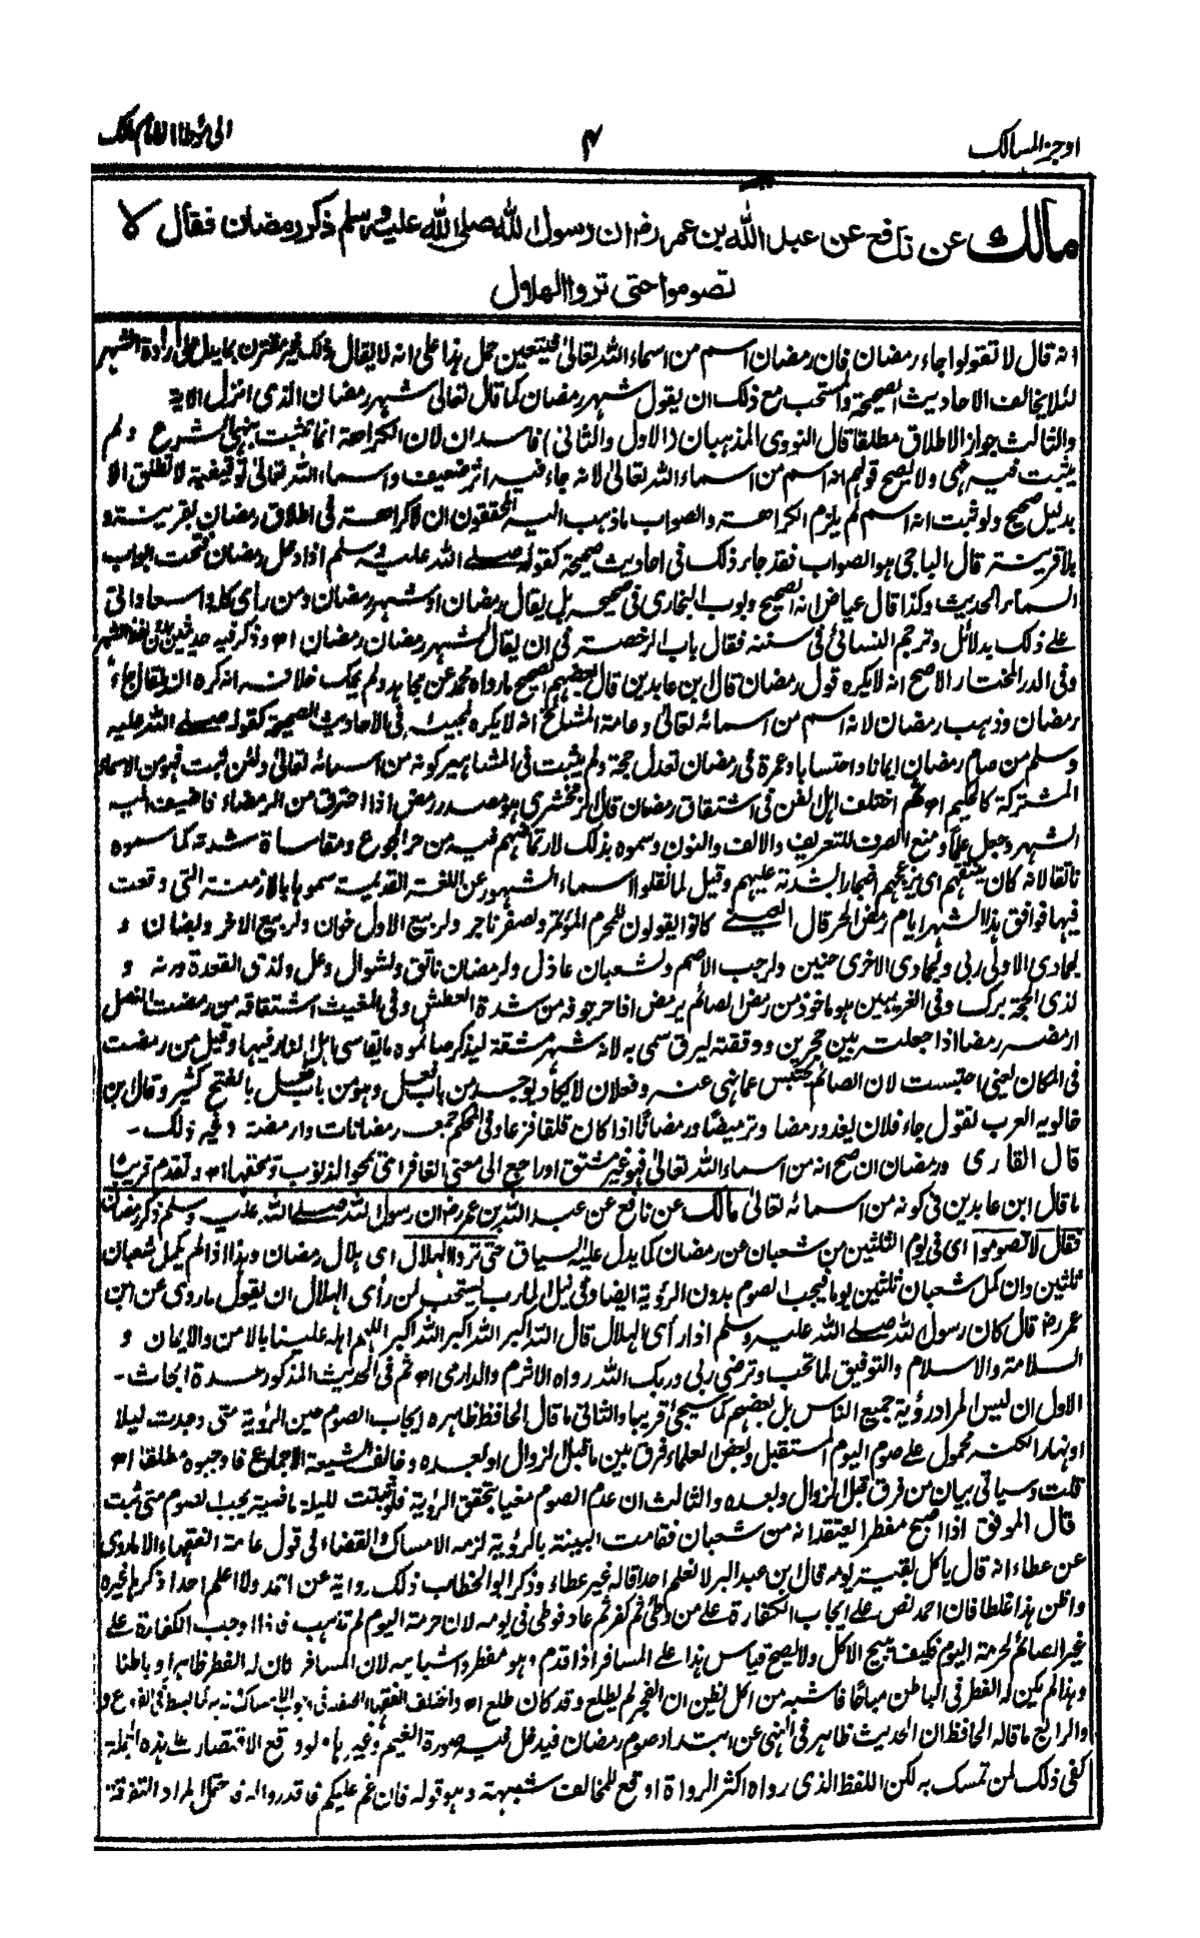 اوجز المسالك
۴
الى مؤطا الامام مالك
مالك عن نافع عن عبد الله بن عمر رض ان رسول الله صلى الله عليه وسلم ذكر رمضان فقال لا
تصوموا حتى تروا الهلال
انه قال لا تقولوا جاء رمضان فان رمضان اسم من اسماء الله تعالى فيتعين حمل هذا على انه لا يقال ذلك غير مقترن بما يدل على ارادة الشهر
لئلا يخالف الاحاديث الصحيحة والمستحب مع ذلك ان يقول شهر رمضان كما قال تعالى شهر رمضان الذى انزل الاية
والثالث جواز الاطلاق مطلقا قال النووى المذهبان (الاول والثانى) فاسدان لان الكراهة انما تثبت بنهى الشرع ولم
يثبت فيه نهى ولا يصح قولهم انه اسم من اسماء الله تعالى لانه جاء فيه اثر ضعيف واسماء الله تعالى توقيفية لا تطلق الا
بدليل صحيح ولو ثبت انه اسم لم يلزم الكراهة والصواب ما ذهب اليه المحققون ان لا كراهة فى اطلاق رمضان بقرينة و
بلا قرينة قال الباجى هو الصواب فقد جاء ذلك فى احاديث صحيحة كقوله صلى الله عليه وسلم اذا دخل رمضان فتحت ابواب
السماء الحديث وكذا قال عياض انه الصحيح وبوب البخارى فى صحيحه هل يقال رمضان او شهر رمضان ومن رأى كله واسعا واتى
على ذلك بدلائل وترجم النسائى فى سننه فقال باب الرخصة فى ان يقال لشهر رمضان رمضان اھ وذكر فيه حديثين بدون لفظ الشهر
وفى الدر المختار الاصح انه لا يكره قول رمضان قال ابن عابدين قال بعضهم الصحيح ما رواه محمد عن مجاهد ولم يحك خلافه انه كره ان يقال جاء
رمضان وذهب رمضان لانه اسم من اسمائه تعالى وعامة المشايخ انه لا يكره لمجيئه فى الاحاديث الصحيحة كقوله صلى الله عليه
وسلم من صام رمضان ايمانا واحتسابا وعمرة فى رمضان تعدل حجة ولم يثبت فى المشاهير كونه من اسمائه تعالى ولئن ثبت فهو من الاسماء
المشتركة كالحكيم اھ ثم اختلف اهل الفن فى اشتقاق رمضان قال الزمخشرى هو مصدر رمض اذا احترق من الرمضاء فاضيف اليه
الشهر وجعل علما ومنع الصرف للتعريف والالف والنون وسموه بذلك لارتماضهم فيه من حر الجوع ومقاساة شدته كما سموه
ناتقا لانه كان ينتقهم اى يزعجهم اضجارا بشدته عليهم وقيل لما نقلوا اسماء الشهور عن اللغة القديمة سموها بالازمنة التى وقعت
فيها فوافق هذا الشهر ايام رمض الحر قال العينى كانوا يقولون للمحرم المؤتمر ولصفر ناجر ولربيع الاول خوان ولربيع الاخر وبصان و
لجمادى الاولى ربى ولجمادى الاخرى حنين ولرجب الاصم ولشعبان عاذل ولرمضان ناتق ولشوال وعل ولذى القعدة ورنه و
لذى الحجة برك وفى الغريبين هو ماخوذ من رمض الصائم يرمض اذا حر جوفه من شدة العطش وفى المغيث اشتقاقه من رمضت النصل
ارمضه رمضا اذا جعلته بين حجرين ودققته ليرق سمى به لانه شهر مشقة ليذكر صائموه ما يقاسى اهل النار فيها وقيل من رمضت
فى المكان يعنى احتبست لان الصائم يحتبس عما نهى عنه وفعلان لا يكاد يوجد من باب فعل وهو من باب فعل بالفتح كثير وقال ابن
خالويه العرب تقول جاء فلان يغدو رمضا وترميضا ورمضانا اذا كان قلقا فزعا وفى المحكم جمعه رمضانات وارمضة وغير ذلك -
قال القارى ورمضان ان صح انه من اسماء الله تعالى فهو غير مشتق او راجع الى معنى الغافر اى يمحو الذنوب ويمحقها اھ وتقدم قريبا
ما قال ابن عابدين فى كونه من اسمائه تعالى مالك عن نافع عن عبد الله بن عمر رض ان رسول الله صلى الله عليه وسلم ذكر رمضان
فقال لا تصوموا اى فى يوم الثلثين من شعبان عن رمضان كما يدل عليه السياق حتى تروا الهلال اى هلال رمضان وهذا اذا لم يكمل شعبان
ثلثين وان كمل شعبان ثلثين يوما فيجب الصوم بدون الرؤية ايضا وفى نيل المارب يستحب لمن رأى الهلال ان يقول ما روى عن ابن
عمر رض قال كان رسول الله صلى الله عليه وسلم اذا رأى الهلال قال الله اكبر الله اكبر الله اكبر اللهم اهله علينا بالامن والايمان و
السلامة والاسلام والتوفيق لما تحب وترضى ربى وربك الله رواه الاثرم والدارمى اھ ثم فى الحديث المذكور عدة ابحاث -
الاول ان ليس المراد رؤية جميع الناس بل بعضهم كما سيجئ قريبا والثانى ما قال الحافظ ظاهره ايجاب الصوم حين الرؤية متى وجدت ليلا
او نهارا لكنه محمول على صوم اليوم المستقبل وبعض العلماء فرق بين ما قبل الزوال او بعده وخالف الشيعة الاجماع فاوجبوه مطلقا اھ
قلت وسياتى بيان من فرق قبل الزوال وبعده والثالث ان عدم الصوم مغيا بتحقق الرؤية فلو تحققت لليلة ماضية يجب الصوم متى ثبت
قال الموفق اذا اصبح مفطرا يعتقد انه من شعبان فقامت البينة بالرؤية لزمه الامساك والقضاء فى قول عامة الفقهاء الا ما روى
عن عطاء انه قال ياكل بقية يومه قال ابن عبد البر لا نعلم احدا قاله غير عطاء وذكر ابو الخطاب ذلك رواية عن احمد ولا اعلم احدا ذكرها غيره
واظن هذا غلطا فان احمد نص على ايجاب الكفارة على من وطئ ثم كفر ثم عاد فوطئ فى يومه لان حرمة اليوم لم تذهب فاذا اوجب الكفارة على
غير الصائم لحرمة اليوم فكيف يبيح الاكل ولا يصح قياس هذا على المسافر اذا قدم وهو مفطر واشباهه لان المسافر كان له الفطر ظاهرا وباطنا
وهذا لم يكن له الفطر فى الباطن مباحا فاشبه من اكل يظن ان الفجر لم يطلع وقد كان طلع اھ واختلف الفقهاء الحنفية فى وجوب الامساك وندبه كما بسط فى الفروع و
والرابع ما قاله الحافظ ان الحديث ظاهر فى النهى عن ابتداء صوم رمضان فيدخل فيه صورة الغيم وغيرها ولو وقع الاقتصار على هذه الجملة
كفى ذلك لمن تمسك به لكن اللفظ الذى رواه اكثر الرواة اوقع للمخالف شبهة وهو قوله فان غم عليكم فاقدروا له فاحتمل المراد التفرقة